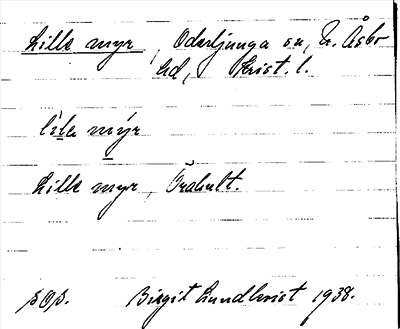 Lille myr, Oderljunga sn, N. Åsbo
hd, Krist. l.
lìla mýr
Lille myr, Örahult.
sOp. Birgit Lundkvist 1938.